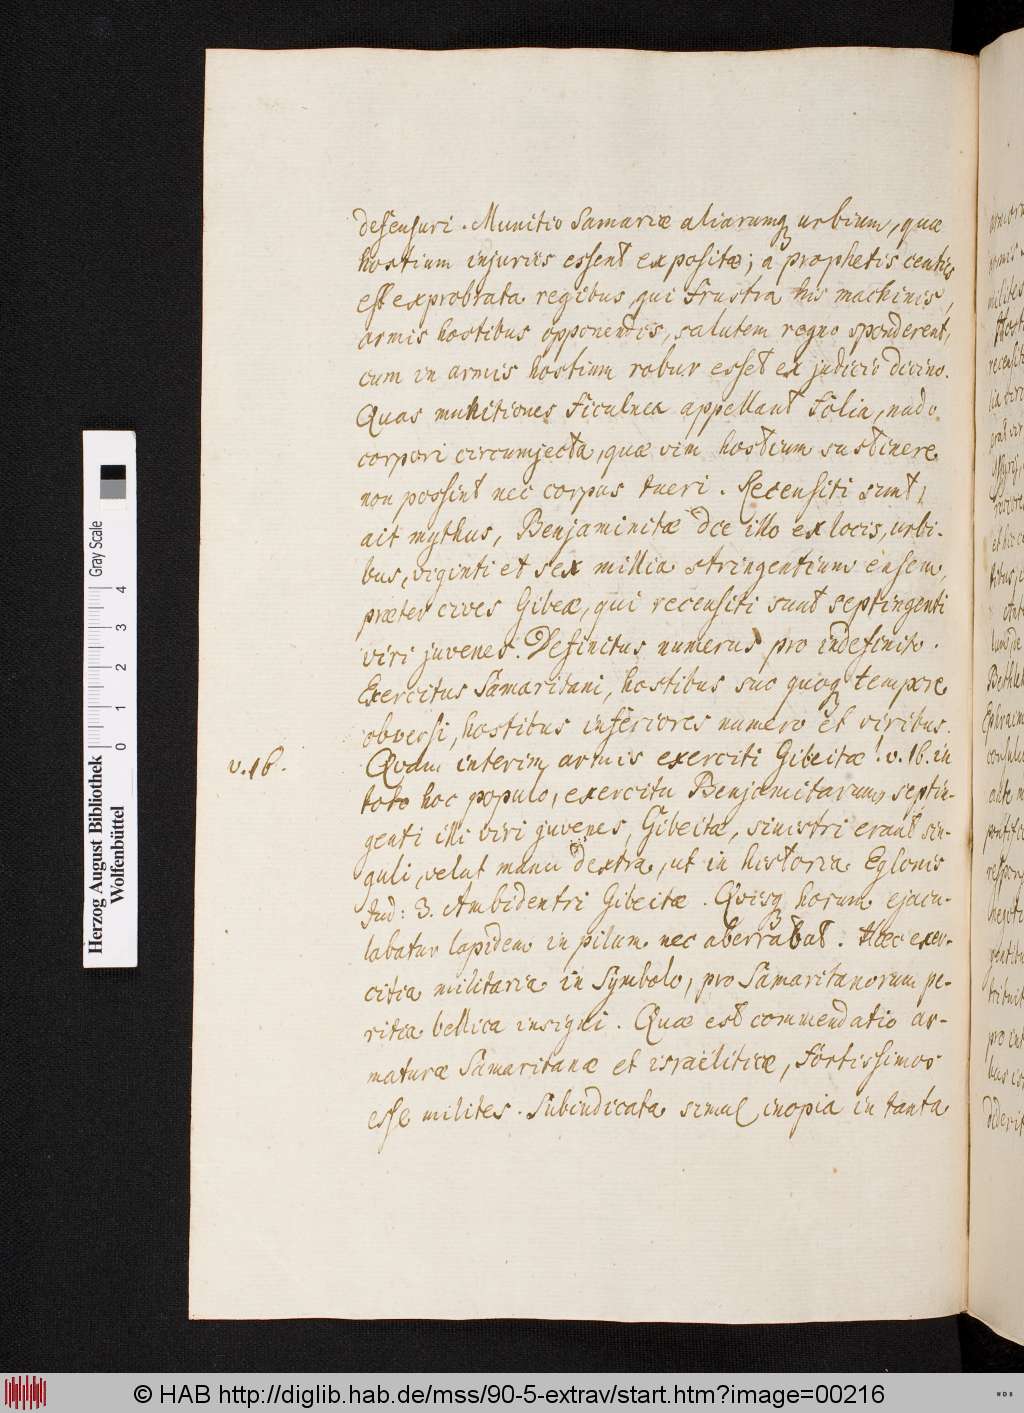 defensuri. Munitio Samariæ aliarumq urbium, quæ
hostium injuriis essent expositæ; a prophetis centies
est exprobrata regibus qui frustra his machinis,
armis hostibus opponendis, salutem regno sponderent,
cum in armis hostium robur esset ex judicio divino.
Quas munitiones ficulnea appellant folia, nudo
corpori circumjecta, quæ vim hostium sustinere
non possint nec corpus tueri. Recensiti sunt,
ait mythus, Benjaminitæ die illo ex locis, urbi-
bus, viginti et sex millia stringentium ensem,
præter cives Gibeæ, qui recensiti sunt septingenti
viri juvenes. Definitus numerus pro indefinito.
Exercitus Samaritani, hostibus suo quoq tempore
obversi, hostibus inferiores numero et viribus.
v. 16.
Qvam interim armis exerciti Gibeitæ! v. 16. in
toto hoc populo, exercitu Benjamitarum, septin-
genti illi viri juvenes, Gibeitæ, sinistri erant sin-
guli, velut manu dextra, ut in historia Eglonis
Jud: 3. Ambidextri Gibeitæ. Qvisq horum ejacu-
labatur lapidem in pilum nec aberrabat. Hæc exer-
citia militaria in Symbolo, pro Samaritanorum pe-
ritia bellica insigni. Quæ est commendatio ar-
maturæ Samaritanæ et israëliticæ, fortissimos
esse milites. Subindicata simul inopia in tanta
Herzog August Bibliothek
Wolfenbüttel
Gray Scale
0 1 2 3 4
© HAB http://diglib.hab.de/mss/90-5-extrav/start.htm?image=00216